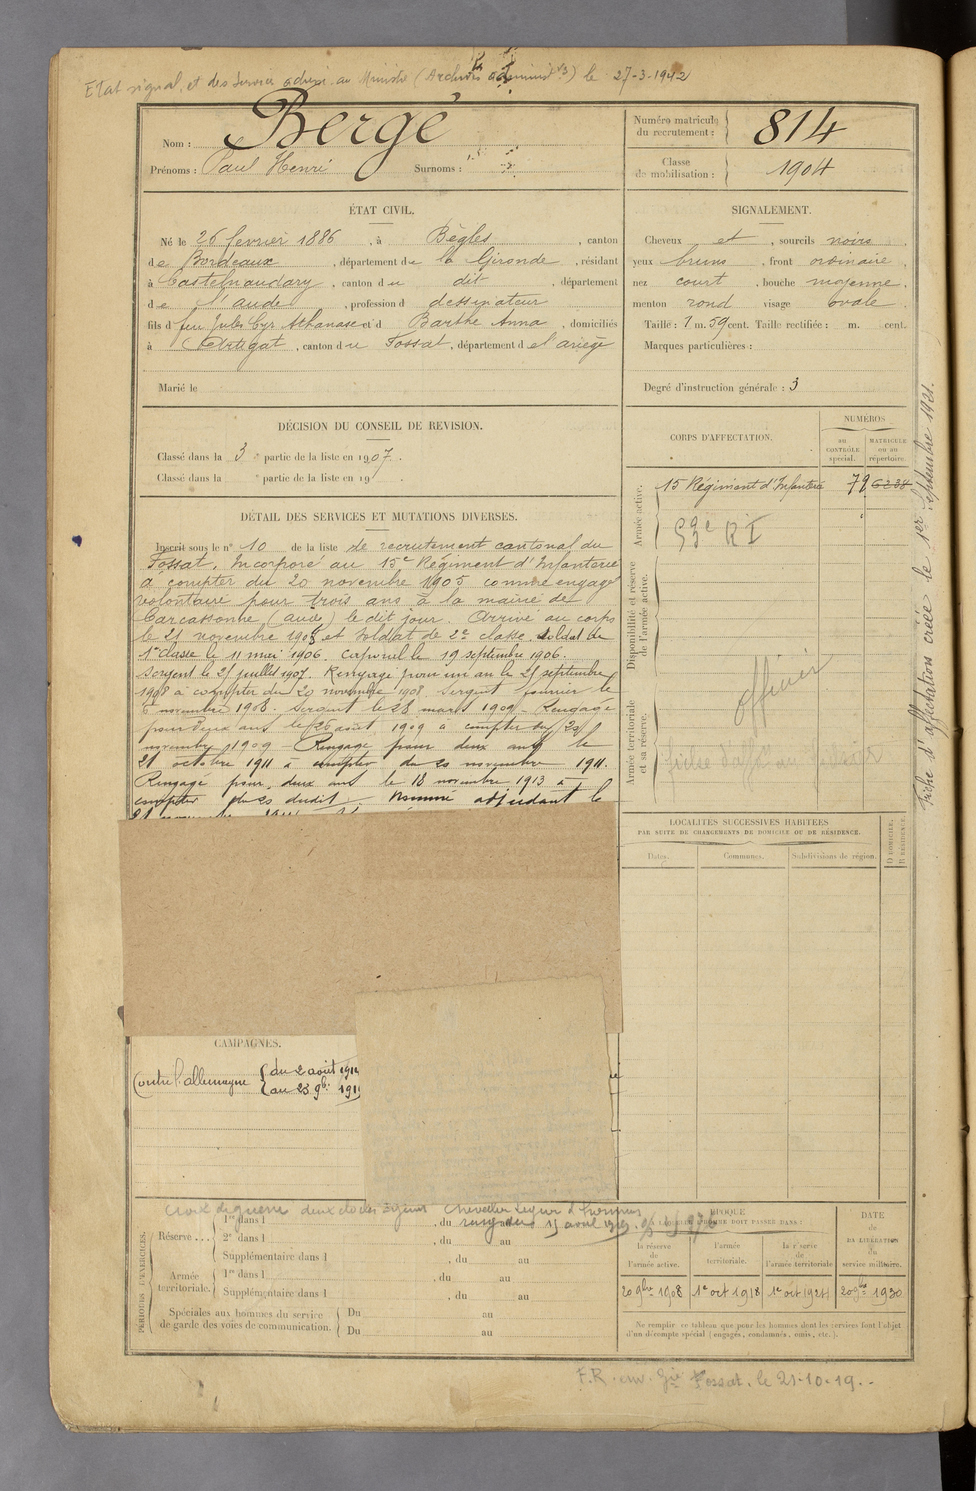 Etat signal. et des services adressé au Ministre (Archives administ.) le 27-3-1942
Nom : Bergé
Prénoms : Paul Henri Surnoms :
Numéro matricule du recrutement : 814
Classe de mobilisation : 1904
ÉTAT CIVIL.
Né le 26 fevrier 1886, à Bègles, canton
de Bordeaux, département de la Gironde, résidant
à Castelnaudary, canton du dit, département
de l'aude, profession d dessinateur
fils d feu Jules Cyr Athanase et d Barthe Anna, domiciliés
à Artigat, canton du Fossat, département de l'ariège
Marié le
SIGNALEMENT.
Cheveux et, sourcils noirs,
yeux bruns, front ordinaire,
nez court, bouche moyenne,
menton rond visage ovale.
Taille : 1 m. 59 cent. Taille rectifiée : m. cent.
Marques particulières :
Degré d'instruction générale : 3
DÉCISION DU CONSEIL DE REVISION.
Classé dans la 3e partie de la liste en 1907.
Classé dans la e partie de la liste en 19
DÉTAIL DES SERVICES ET MUTATIONS DIVERSES.
Inscrit sous le n° 10 de la liste de recrutement cantonal du
Fossat. Incorporé au 15e Régiment d'Infanterie
à compter du 20 novembre 1905 comme engagé
volontaire pour trois ans à la mairie de
Carcassonne (aude) le dit jour. Arrivé au corps
le 21 novembre 1905 et soldat de 2e classe. Soldat de
1e classe le 11 mai 1906. Caporal le 19 septembre 1906.
Sergent le 25 juillet 1907. Rengagé pour un an le 25 septembre
1908 à compter du 20 novembre 1908. Sergent fourrier le
6 novembre 1908. Sergent le 28 mars 1909. Rengagé
pour deux ans le 26 août 1909 à compter du 20
novembre 1909 - Rengagé pour deux ans le
21 octobre 1911 à compter du 20 novembre 1911.
Rengagé pour deux ans le 18 novembre 1913 à
compter du 20 dudit. Nommé adjudant le
CORPS D'AFFECTATION.
NUMÉROS
au contrôle spécial.
MATRICULE ou au répertoire.
Armée active.
15 Régiment d'Infanterie 79 6234
59e RI
Disponibilité et réserve de l'armée active.
officier
Armée territoriale et sa réserve.
Fiche d'affectation créée le 1er septembre 1921.
LOCALITÉS SUCCESSIVES HABITÉES
PAR SUITE DE CHANGEMENTS DE DOMICILE OU DE RÉSIDENCE.
Dates. Communes. Subdivisions de région. D DOMICILE. R RÉSIDENCE.
CAMPAGNES.
Contre l'allemagne { du 2 août 1914
au 23 9bre 191
Croix de guerre deux étoiles argent Chevalier Légion d'honneur
PÉRIODES D'EXERCICES.
Réserve... 1re dans l , du au
2e dans l , du au
Supplémentaire dans l , du au
Armée territoriale. 1re dans l , du au
Supplémentaire dans l , du au
Spéciales aux hommes du service de garde des voies de communication. Du au
Du au
ÉPOQUE
À LAQUELLE L'HOMME DOIT PASSER DANS :
la réserve de l'armée active. l'armée territoriale. la réserve de l'armée territoriale
DATE de LA LIBÉRATION du service militaire.
20 9bre 1908 1e oct 1918 1e oct 1924 20 9bre 1930
Ne remplir ce tableau que pour les hommes dont les services font l'objet
d'un décompte spécial (engagés, condamnés, omis, etc.).
F.R. env. Gie Fossat. le 21-10-19.